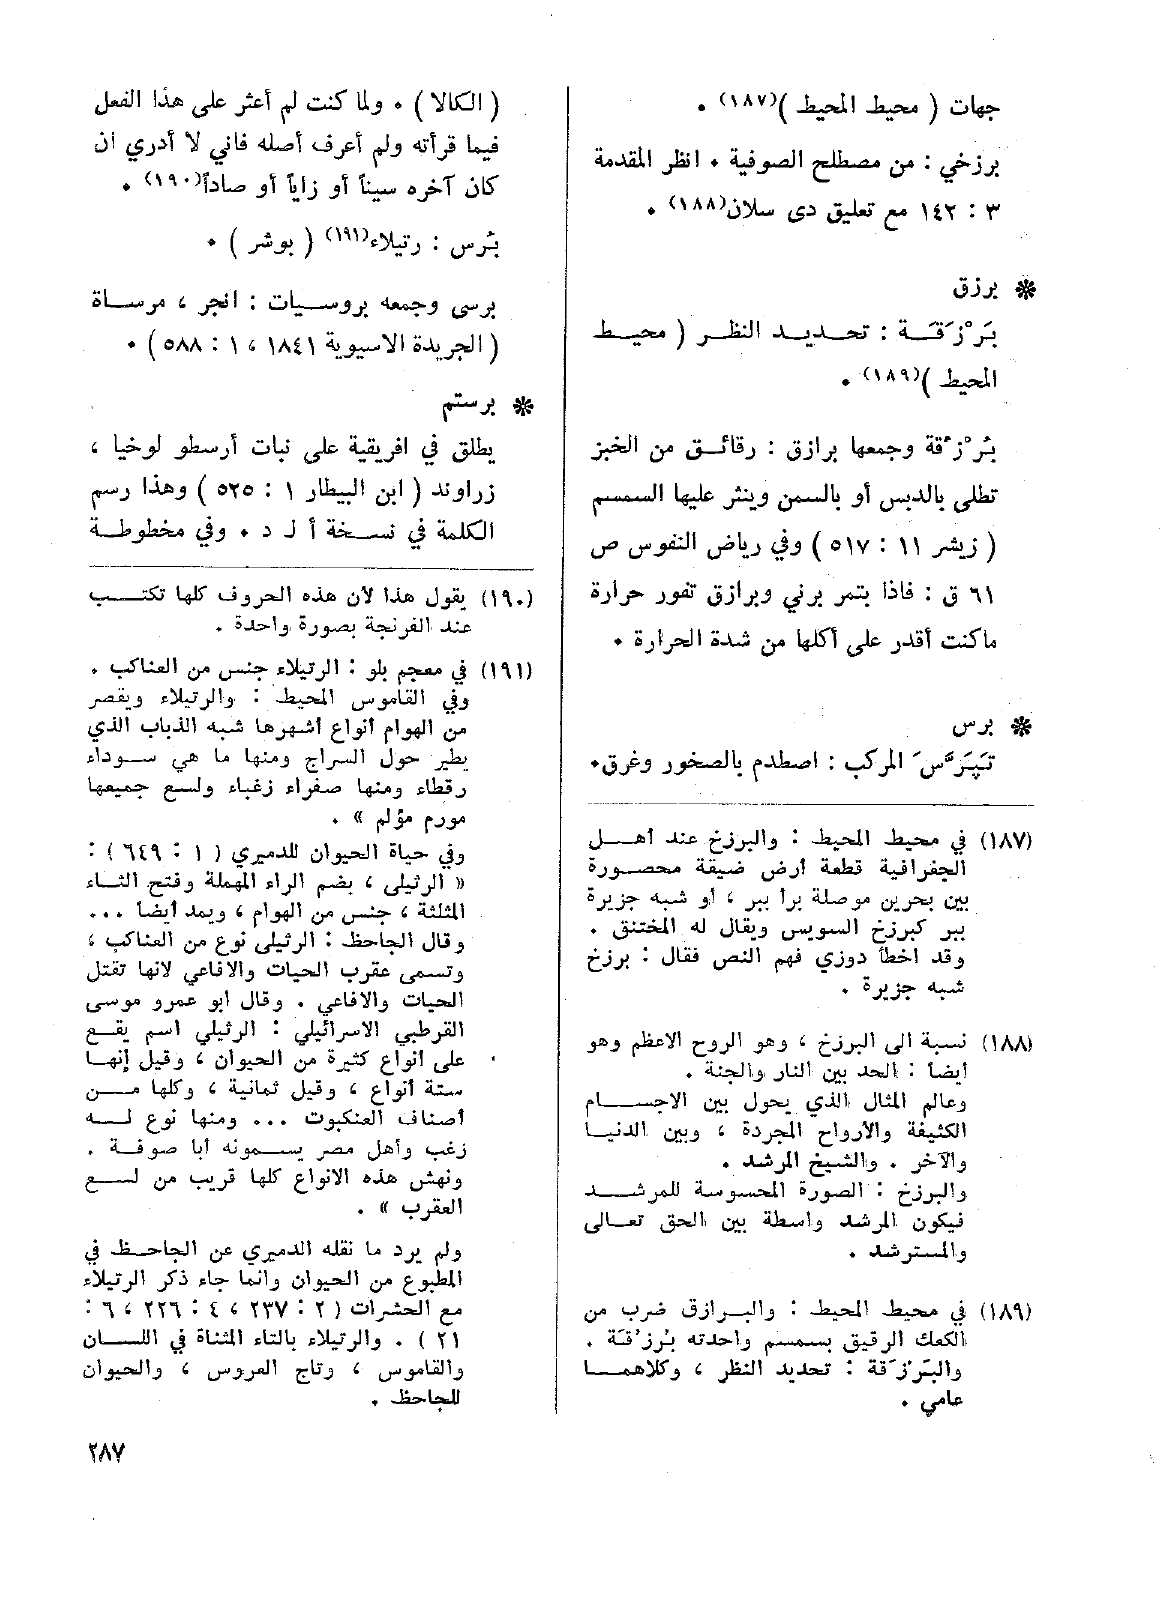 جهات ( محيط المحيط )(١٨٧) ٠
برزخي : من مصطلح الصوفية ٠ انظر المقدمة
٣ : ١٤٢ مع تعليق دى سلان(١٨٨) ٠
✻ برزق
بَرْزَقَة : تحديد النظر ( محيط
المحيط )(١٨٩) ٠
بُرْزُقة وجمعها برازق : رقائق من الخبز
تطلى بالدبس أو بالسمن وينثر عليها السمسم
( زيشر ١١ : ٥١٧ ) وفي رياض النفوس ص
٦١ ق : فاذا بتمر برني وبرازق تفور حرارة
ماكنت أقدر على أكلها من شدة الحرارة ٠
✻ برس
تَبَرَّسَ المركب : اصطدم بالصخور وغرق٠
(١٨٧) في محيط المحيط : والبرزخ عند أهل
الجغرافية قطعة أرض ضيقة محصورة
بين بحرين موصلة براً ببر ، أو شبه جزيرة
ببر كبرزخ السويس ويقال له المختنق .
وقد اخطأ دوزي فهم النص فقال : برزخ
شبه جزيرة .
(١٨٨) نسبة الى البرزخ ، وهو الروح الاعظم وهو
أيضا : الحد بين النار والجنة .
وعالم المثال الذي يحول بين الاجسام
الكثيفة والأرواح المجردة ، وبين الدنيا
والآخر . والشيخ المرشد .
والبرزخ : الصورة المحسوسة للمرشد
فيكون المرشد واسطة بين الحق تعالى
والمسترشد .
(١٨٩) في محيط المحيط : والبرازق ضرب من
الكعك الرقيق بسمسم واحدته بُرْزُقة .
والبَرْزَقة : تحديد النظر ، وكلاهما
عامي .
( الكالا ) ٠ ولما كنت لم أعثر على هذا الفعل
فيما قرأته ولم أعرف أصله فاني لا أدري ان
كان آخره سيناً أو زاياً أو صاداً(١٩٠) ٠
بُرس : رتيلاء(١٩١) ( بوشر ) ٠
برسى وجمعه بروسيات : انجر ، مرساة
( الجريدة الاسيوية ١٨٤١ ، ١ : ٥٨٨ ) ٠
✻ برستم
يطلق في افريقية على نبات أرسطو لوخيا ،
زراوند ( ابن البيطار ١ : ٥٢٥ ) وهذا رسم
الكلمة في نسخة أ ل د ٠ وفي مخطوطة
(١٩٠) يقول هذا لأن هذه الحروف كلها تكتب
عند الفرنجة بصورة واحدة .
(١٩١) في معجم بلو : الرتيلاء جنس من العناكب .
وفي القاموس المحيط : والرتيلاء ويقصر
من الهوام أنواع أشهرها شبه الذباب الذي
يطير حول السراج ومنها ما هي سوداء
رقطاء ومنها صفراء زغباء ولسع جميعها
مورم مؤلم » .
وفي حياة الحيوان للدميري ( ١ : ٦٤٩ ) :
« الرثيلى ، بضم الراء المهملة وفتح الثاء
المثلثة ، جنس من الهوام ، ويمد أيضا ...
وقال الجاحظ : الرثيلى نوع من العناكب ،
وتسمى عقرب الحيات والافاعي لانها تقتل
الحيات والافاعي . وقال ابو عمرو موسى
القرطبي الاسرائيلي : الرثيلي اسم يقع
على أنواع كثيرة من الحيوان ، وقيل إنها
ستة أنواع ، وقيل ثمانية ، وكلها من
أصناف العنكبوت ... ومنها نوع له
زغب وأهل مصر يسمونه أبا صوفة .
ونهش هذه الانواع كلها قريب من لسع
العقرب » .
ولم يرد ما نقله الدميري عن الجاحظ في
المطبوع من الحيوان وانما جاء ذكر الرتيلاء
مع الحشرات ( ٢ : ٢٣٧ ، ٤ : ٢٢٦ ، ٦ :
٢١ ) . والرتيلاء بالتاء المثناة في اللسان
والقاموس ، وتاج العروس ، والحيوان
للجاحظ .
٢٨٧